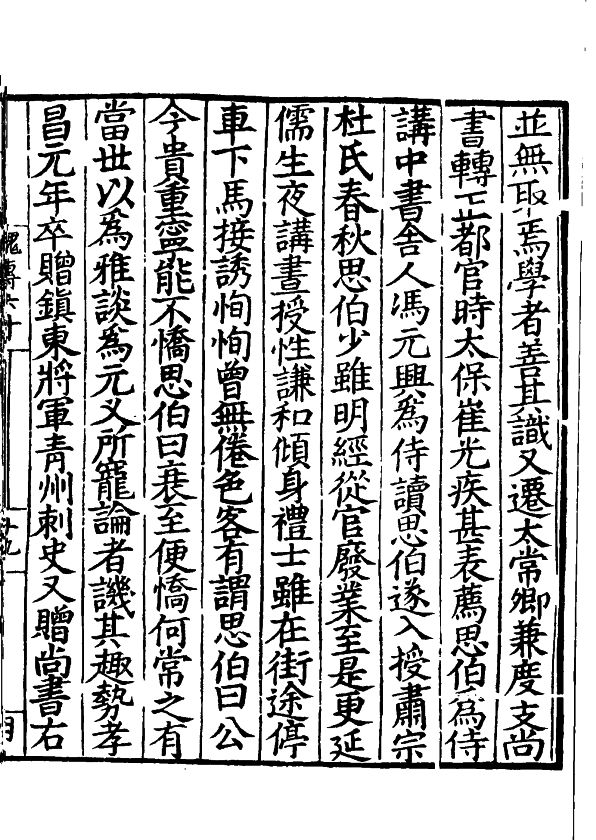 並無取焉學者善其識又遷太常卿兼度支尚
書轉正都官時太保崔光疾甚表薦思伯爲侍
講中書舍人馮元興爲侍讀思伯遂入授肅宗
杜氏春秋思伯少雖明經從官廢業至是更延
儒生夜講晝授性謙和傾身禮士雖在街途停
車下馬接誘恂恂曾無倦色客有謂思伯曰公
今貴重寧能不憍思伯曰衰至便憍何常之有
當世以爲雅談爲元乂所寵論者譏其趣勢孝
昌元年卒贈鎮東將軍青州刺史又贈尚書右
魏傳六十
十九